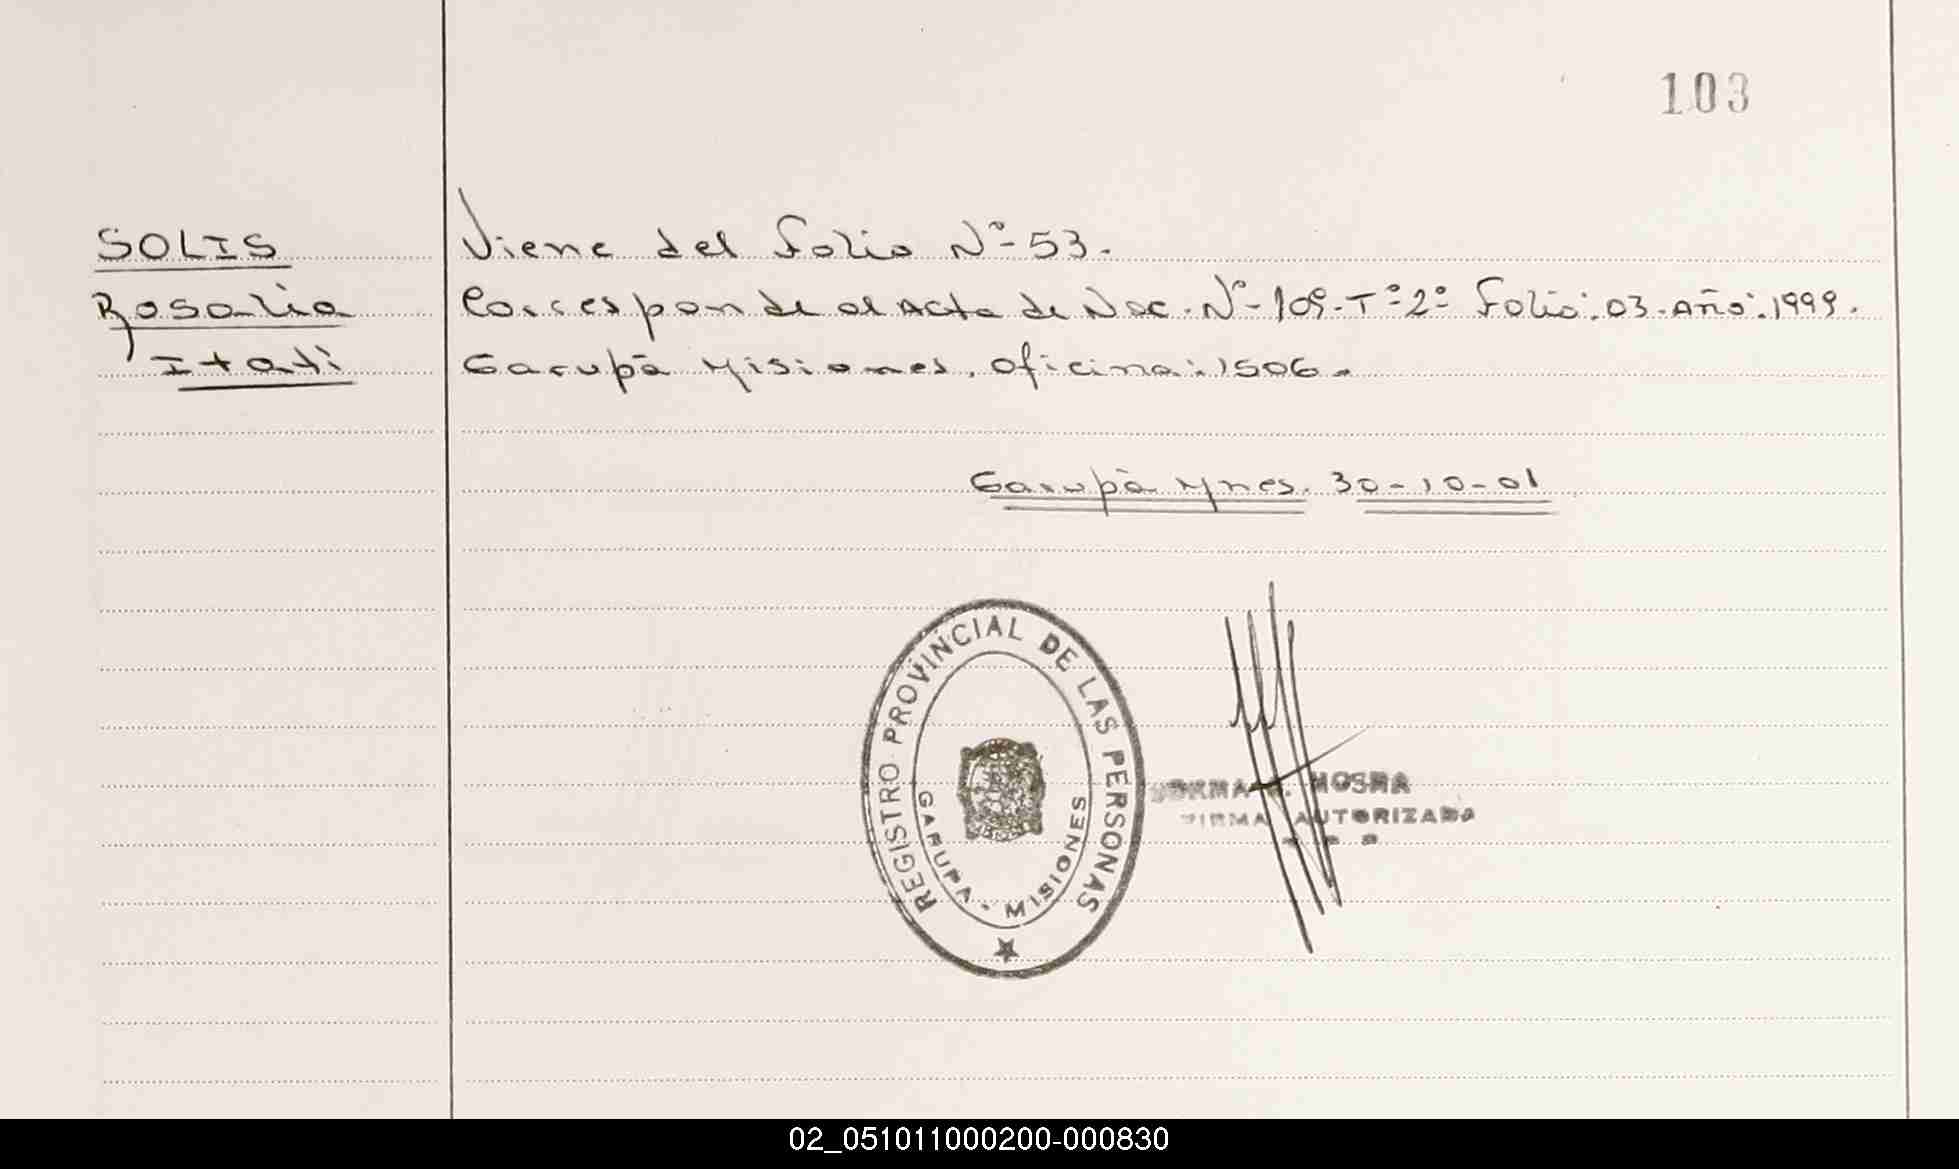 103
SOLIS
Rosalia
Itati
Viene del Folio Nº-53.
Corresponde al Acta de Nac. Nº-109-Tº-2º Folio: 03-Año: 1999.
Garupá Misiones, Oficina: 1506.
Garupá Mnes. 30-10-01
REGISTRO PROVINCIAL DE LAS PERSONAS
GARUPA - MISIONES
NORMA MOSMA
FIRMA AUTORIZADA
02_051011000200-000830